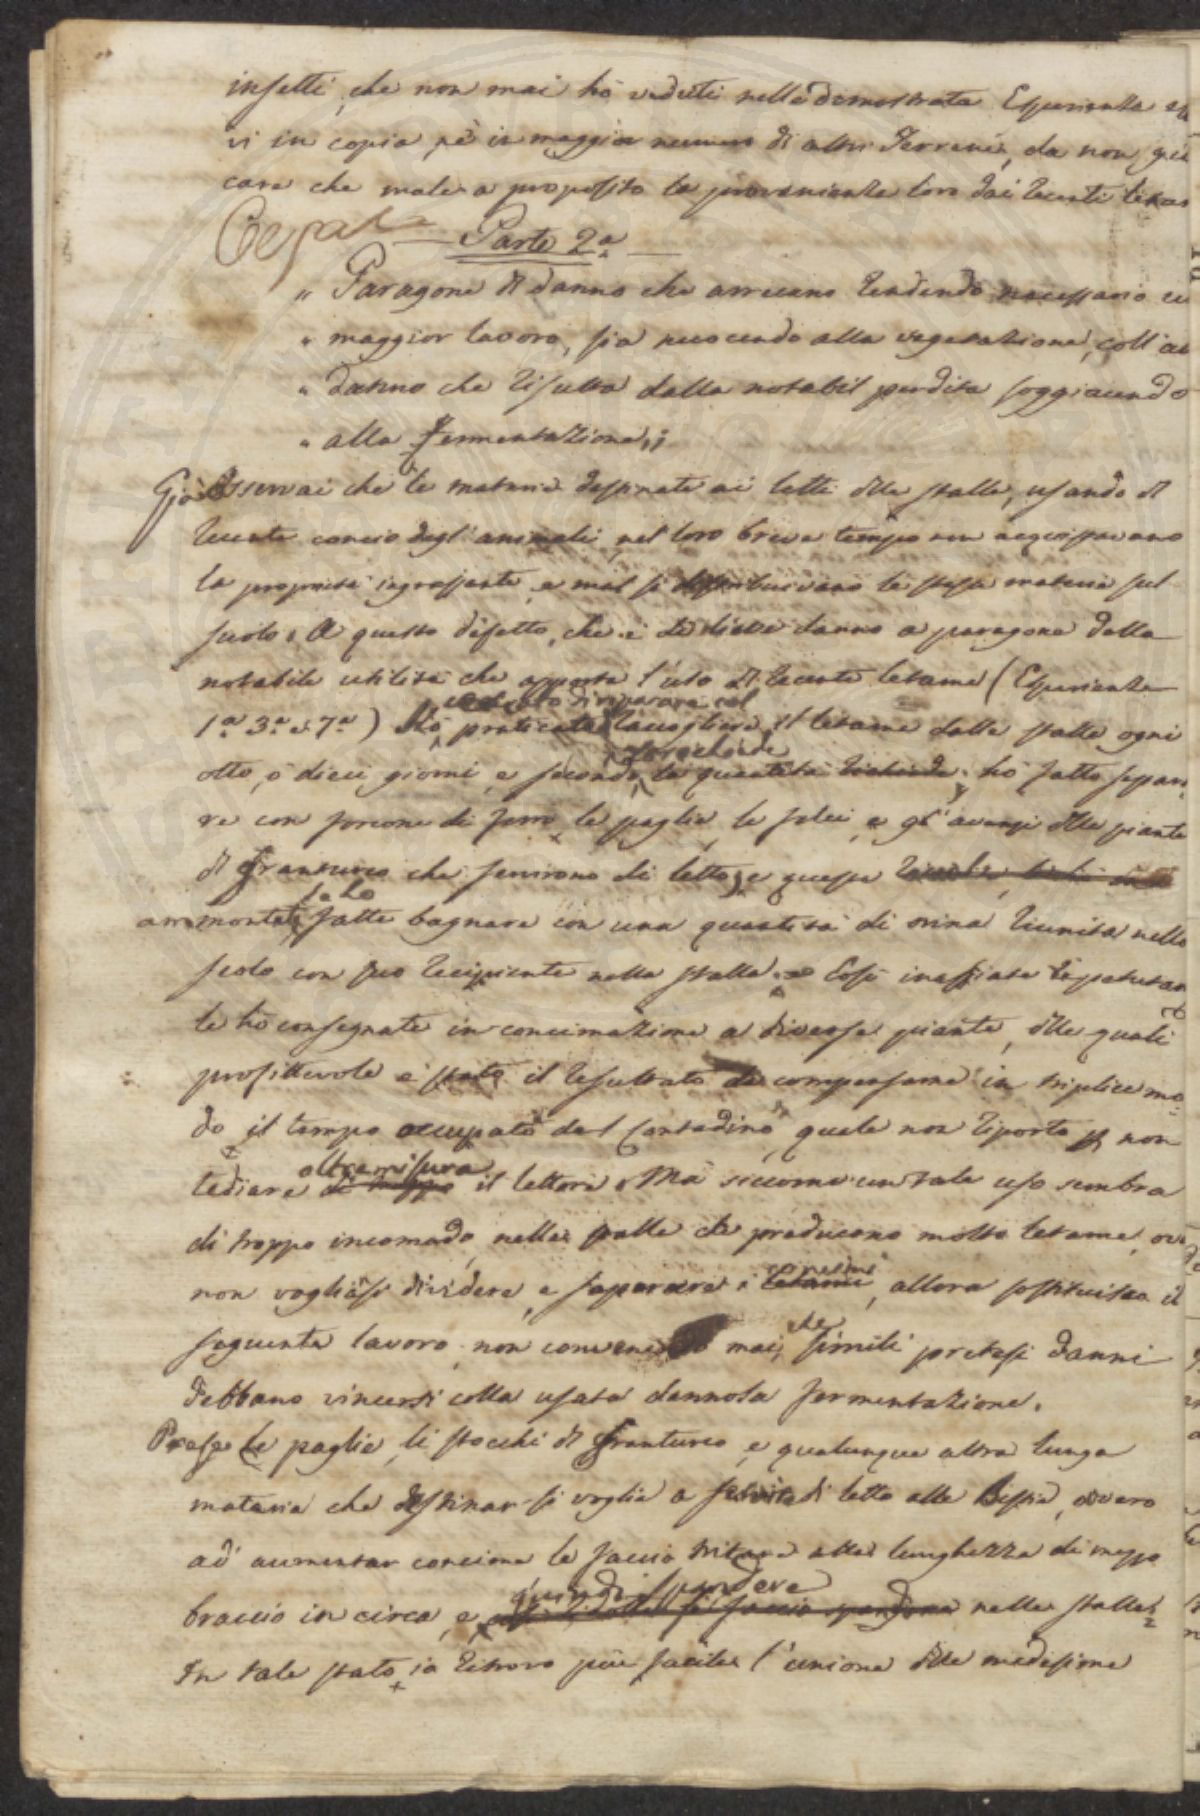 insetti, che non mai hò veduti nelle dimostrate Esperienze
vi in copia, nè in maggior numero di altri Terreni, da non giu
care che male a proposito la proveniente loro dai recenti letam
Parte 2.a
" Paragone di danno che arrecano rendendo necessario un
" maggior lavoro, sia nuocendo alla vegetazione, coll'al
" danno che risulta dalla notabil perdita soggiacendo
" alla fermentazione,,;
Già Osservai che le materie destinate ai letti delle stalle, usando di
recente concio degl'animali, nel loro breve tempo non acquistavano
la proprietà ingrassante, e mal si distribuivano le stesse materie sul
suolo. A questo difetto, che è di lieve danno a paragone della
notabile utilità che apporta l'uso di recente letame (Esperienze
di riparare col
1.a 3.a e 7.a) Hò praticato raccogliere il letame dalle stalle ogni
otto, ò dieci giorni, e secondo la quantità richiede, hò fatto separa
re con forcone di ferro le paglie, le felci, e gl'avanzi delle piante
di Granturco che servirono di letto, e queste
se ho
ammontate fatte bagnare con una quantità di orina riunita nello
scolo con suo recipiente nella stalla. Così inaffiate
le hò consegnate in concimazione a diverse piante, delle quali
profittevole è stato il resultato da compensarne in triplice mo
do il tempo occupato dal Contadino, quale non riporto p. non
oltremisura
tediare di troppo il lettore. Mà siccome un tale uso sembra
di troppo incomodo, nelle stalle che producono molto letame, ove
concimi
non vogliasi dividere, e separare i letami, allora sostituisca il
che
seguente lavoro, non convenendo mai, simili pretesi danni
debbano vincersi colla usata dannosa fermentazione.
Prese le paglie, li stocchi di Granturco, e qualunque altra lunga
materia che destinar si voglia a servire di letto alle Bestie, ovvero
ad aumentar concime le faccio tritare alla lunghezza di mezzo
quindi spandere
braccio in circa, e nelle stalle.
In tale stato, io ritrovo più facile l'unione delle medesime